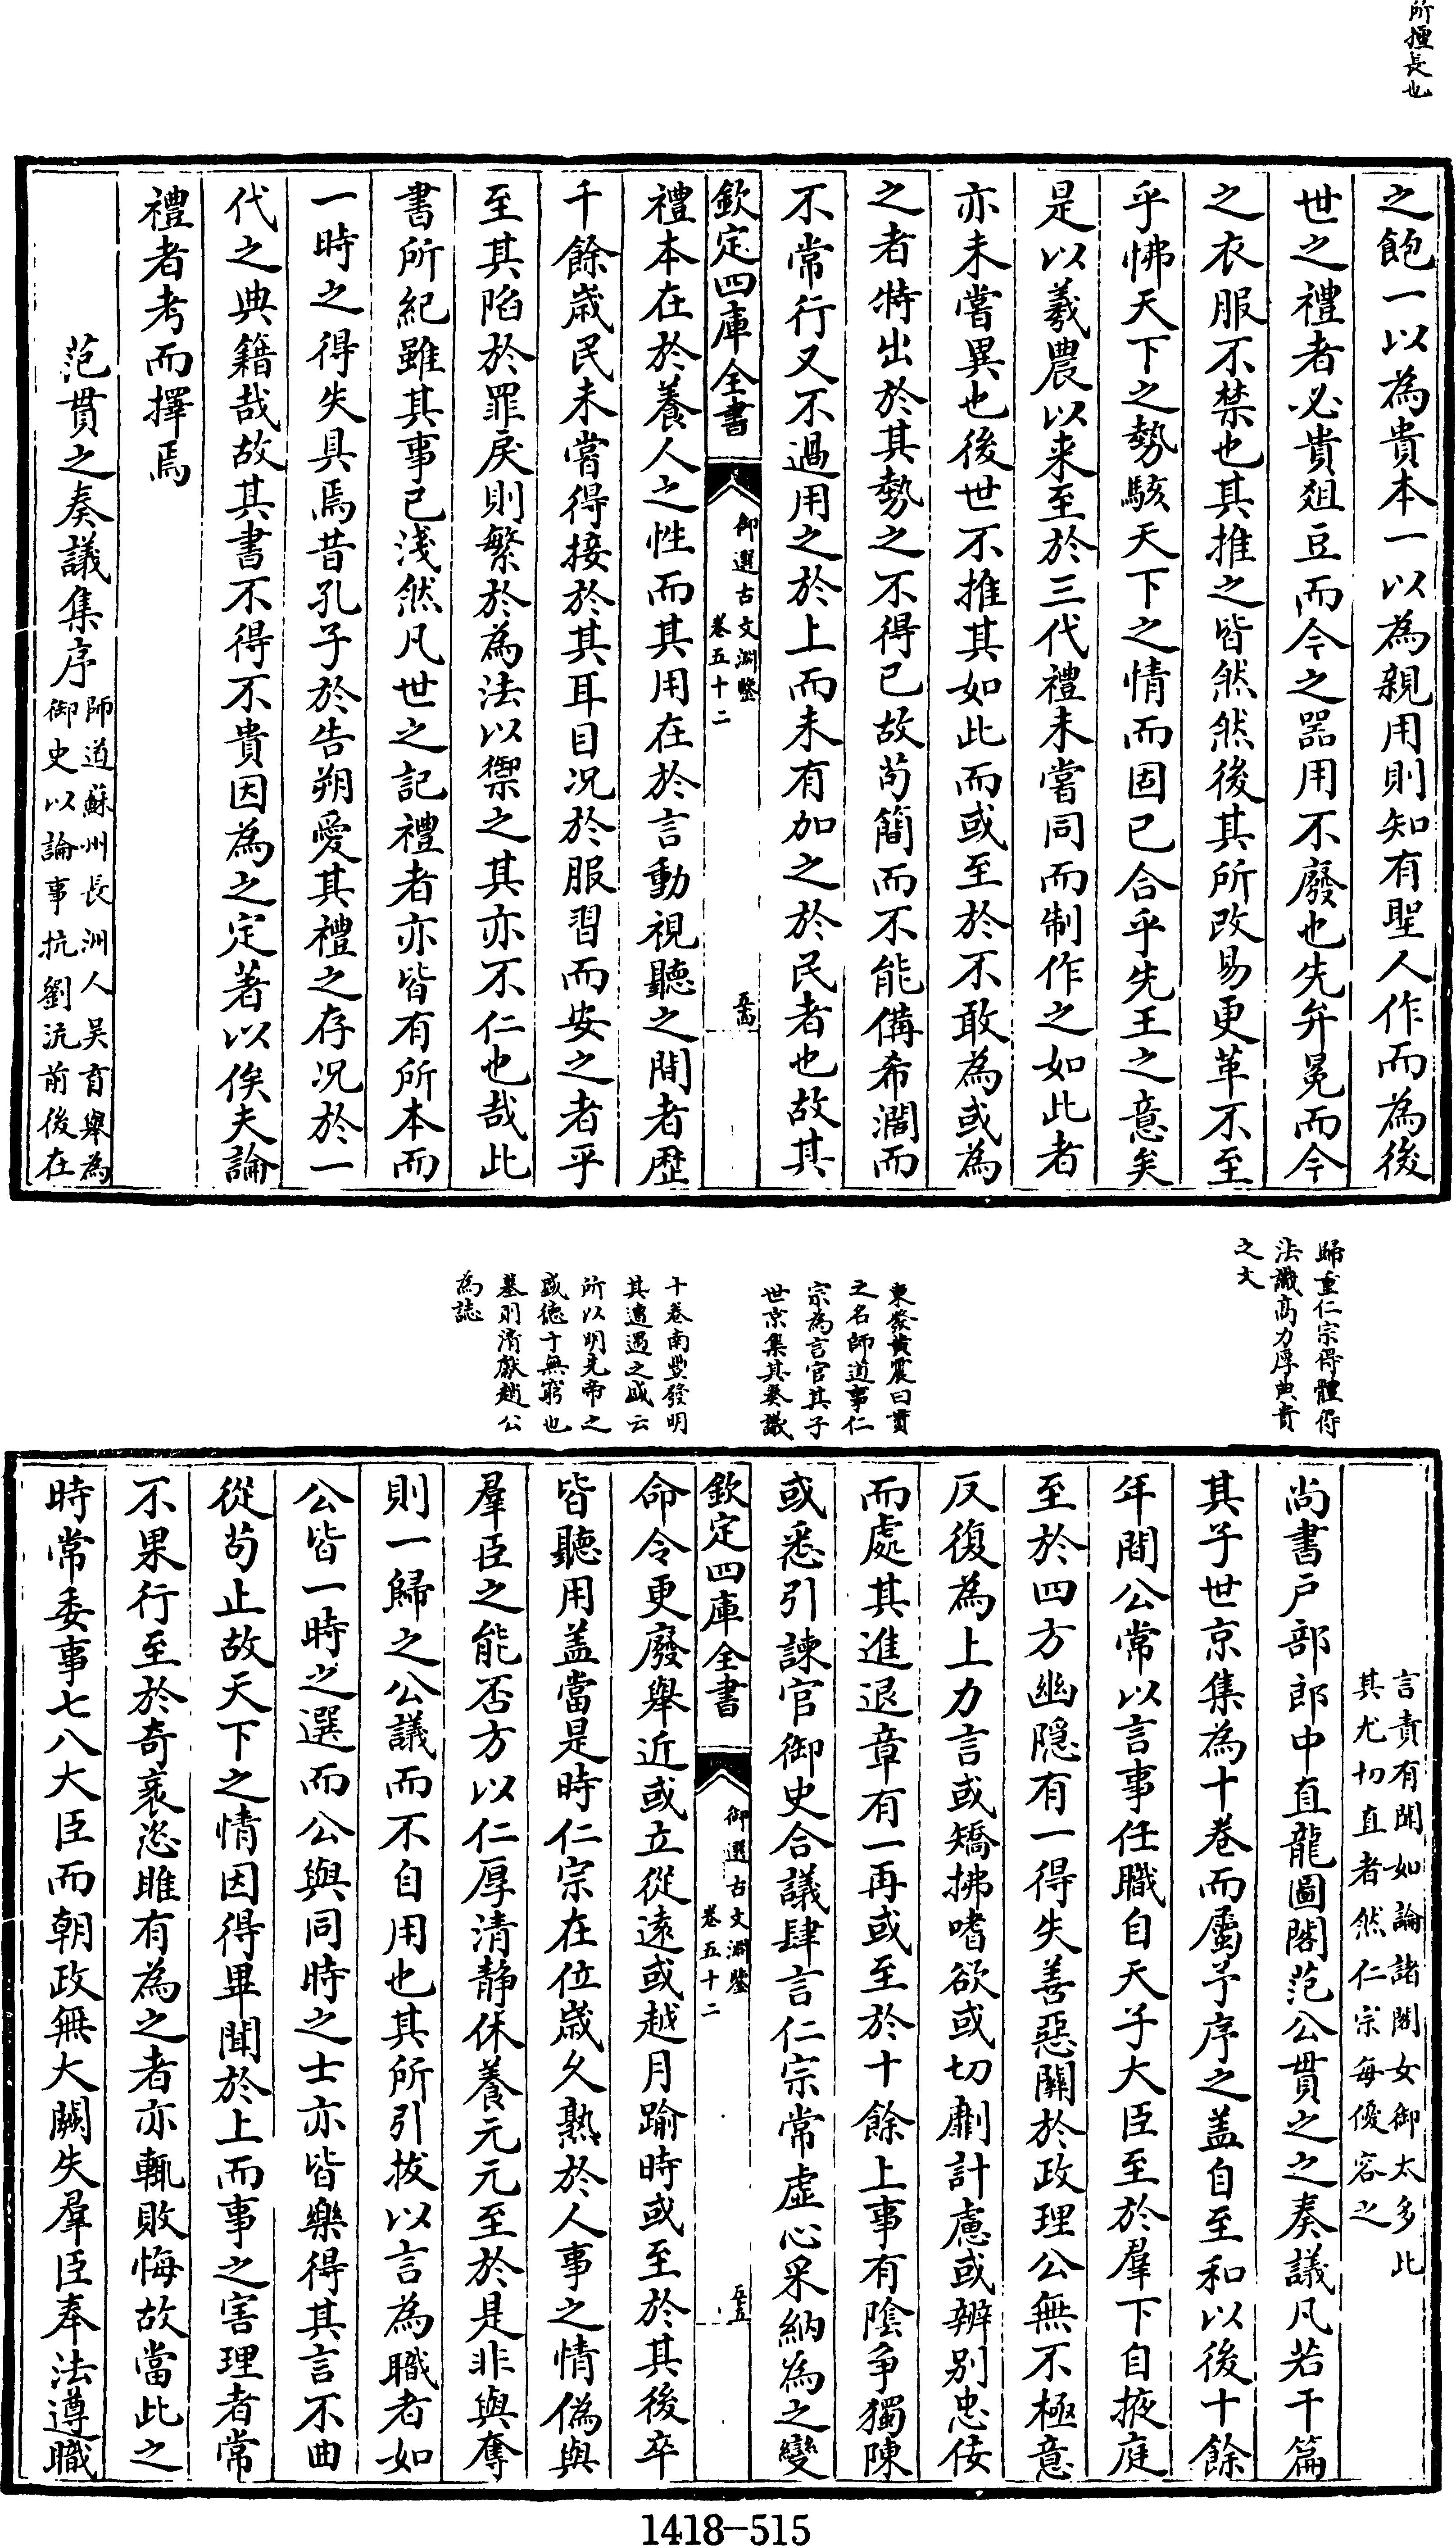 所擅長也
之飽一以為貴本一以為親用則知有聖人作而為後
世之禮者必貴俎豆而今之器用不廢也先弁冕而今
之衣服不禁也其推之皆然然後其所改易更革不至
乎怫天下之勢駭天下之情而固已合乎先王之意矣
是以羲農以来至於三代禮未嘗同而制作之如此者
亦未嘗異也後世不推其如此而或至於不敢為或為
之者特出於其勢之不得已故茍簡而不能備希濶而
不常行又不過用之於上而未有加之於民者也故其
欽定四庫全書
御選古文淵鑒
卷五十二
五十四
禮本在於養人之性而其用在於言動視聽之間者歴
千餘歳民未嘗得接於其耳目况於服習而安之者乎
至其陷於罪戾則繁於為法以禦之其亦不仁也哉此
書所紀雖其事已淺然凡世之記禮者亦皆有所本而
一時之得失具焉昔孔子於告朔愛其禮之存况於一
代之典籍哉故其書不得不貴因為之定著以俟夫論
禮者考而擇焉
范貫之奏議集序
師道蘇州長洲人吴育舉為
御史以論事抗劉沆前後在
歸重仁宗得體得
法識高力厚典貴
之文
東發黄震曰貫
之名師道事仁
宗為言官其子
世京集其奏議
十卷南豐發明
其遭遇之盛云
所以明先帝之
盛徳于無窮也
墓則清獻趙公
為誌
言責有聞如論諸閣女御太多此
其尤切直者然仁宗每優容之
尚書户部郎中直龍圖閣范公貫之之奏議凡若干篇
其子世京集為十卷而屬予序之盖自至和以後十餘
年間公常以言事任職自天子大臣至於羣下自掖庭
至於四方幽隠有一得失善惡闗於政理公無不極意
反復為上力言或矯拂嗜欲或切劘計慮或辨别忠佞
而處其進退章有一再或至於十餘上事有陰争獨陳
或悉引諫官御史合議肆言仁宗常虚心采納為之變
欽定四庫全書
御選古文淵鑒
卷五十二
五十五
命令更廢舉近或立從逺或越月踰時或至於其後卒
皆聽用盖當是時仁宗在位歳久熟於人事之情偽與
羣臣之能否方以仁厚清静休養元元至於是非與奪
則一歸之公議而不自用也其所引拔以言為職者如
公皆一時之選而公與同時之士亦皆樂得其言不曲
從茍止故天下之情因得畢聞於上而事之害理者常
不果行至於奇衺恣雎有為之者亦輒敗悔故當此之
時常委事七八大臣而朝政無大闕失羣臣奉法遵職
1418-515